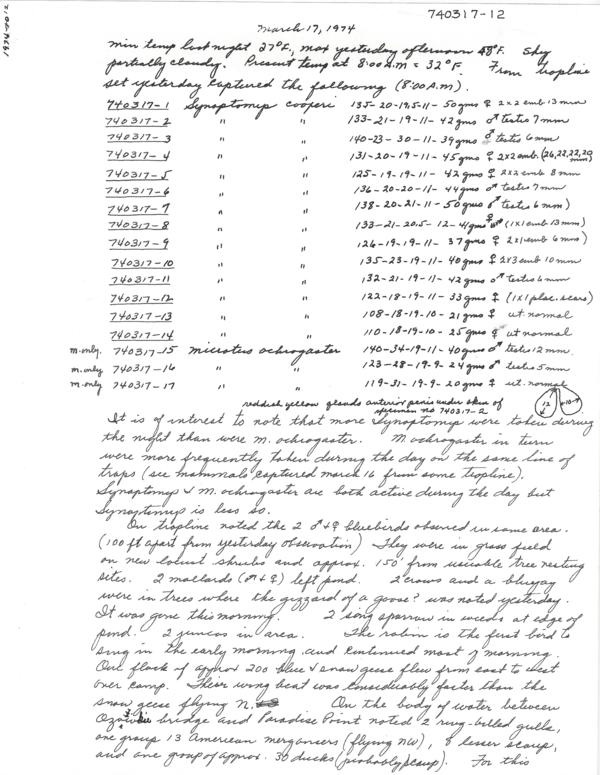 1974-0012
740317-12
March 17, 1974
Min temp last night 27°F, max yesterday afternoon 48°F. Sky
partially cloudy. Present temp at 8:00 A.M = 32°F. From trapline
set yesterday captured the following (8:00 A.M).
740317-1 Synaptomys cooperi 135-20-19.5-11-50gms ♀ 2x2 emb 13mm
740317-2 " " 133-21-19-11-42gms ♂ testis 7mm
740317-3 " " 140-23-30-11-39gms ♂ testis 6mm
740317-4 " " 131-20-19-11-45gms ♀ 2x2 emb. (26,22,22,20 mm)
740317-5 " " 125-19-19-11-42 gms ♀ 2x2 emb 8mm
740317-6 " " 136-20-20-11-44gms ♂ testis 7mm
740317-7 " " 138-20-21-11-50gms ♂ testis 6mm)
740317-8 " " 133-21-20.5-12-41gms ♀ (1x1 emb 13mm)
740317-9 " " 126-19-19-11-37gms ♀ 2x1 emb 6mm)
740317-10 " " 135-23-19-11-40gms ♀ 2x3 emb 10mm
740317-11 " " 132-21-19-11-42gms ♂ testis 6mm
740317-12 " " 122-18-19-11-33gms ♀ (1x1 plac. scars)
740317-13 " " 108-18-19-10-21gms ♀ ut. normal
740317-14 " " 110-18-19-10-25gms ♀ ut normal
m.only. 740317-15 Microtus ochrogaster 140-34-19-11-40gms ♂ testis 12mm.
m.only 740317-16 " " 123-28-19-9-24gms ♂ testis 5mm
m.only 740317-17 " " 119-31-19-9-20gms ♀ ut. normal
reddish yellow glands anterior penis under skin of
specimen no 740317-2
12
It is of interest to note that more Synaptomys were taken during
the night than were M. ochrogaster. M ochrogaster in turn
were more frequently taken during the day on the same line of
traps (see mammals captured March 16 from same trapline).
Synaptomys & M. ochrogaster are both active during the day but
Synaptomys is less so.
On trapline noted the 2 ♂ + ♀ bluebirds observed in same area.
(100 ft apart from yesterday observation) They were in grass field
on new locust shrubs and approx. 150' from usuable tree nesting
sites. 2 mallards (♂ + ♀) left pond. 2 crows and a bluejay
were in trees where the gizzard of a goose? was noted yesterday.
It was gone this morning. 2 song sparrow in weeds at edge of
pond. 2 juncos in area. The robin is the first bird to
sing in the early morning and continued most of morning.
One flock of approx 200 blue & snow geese flew from east to west
over camp. Their wing beat was considerably faster than the
snow geese flying N. On the body of water between
bridge and Paradise Point noted 2 ring-billed gulls,
one group 13 American mergansers (flying NW), 8 lesser scaup,
and one group of approx. 30 ducks (probably scaup). For this